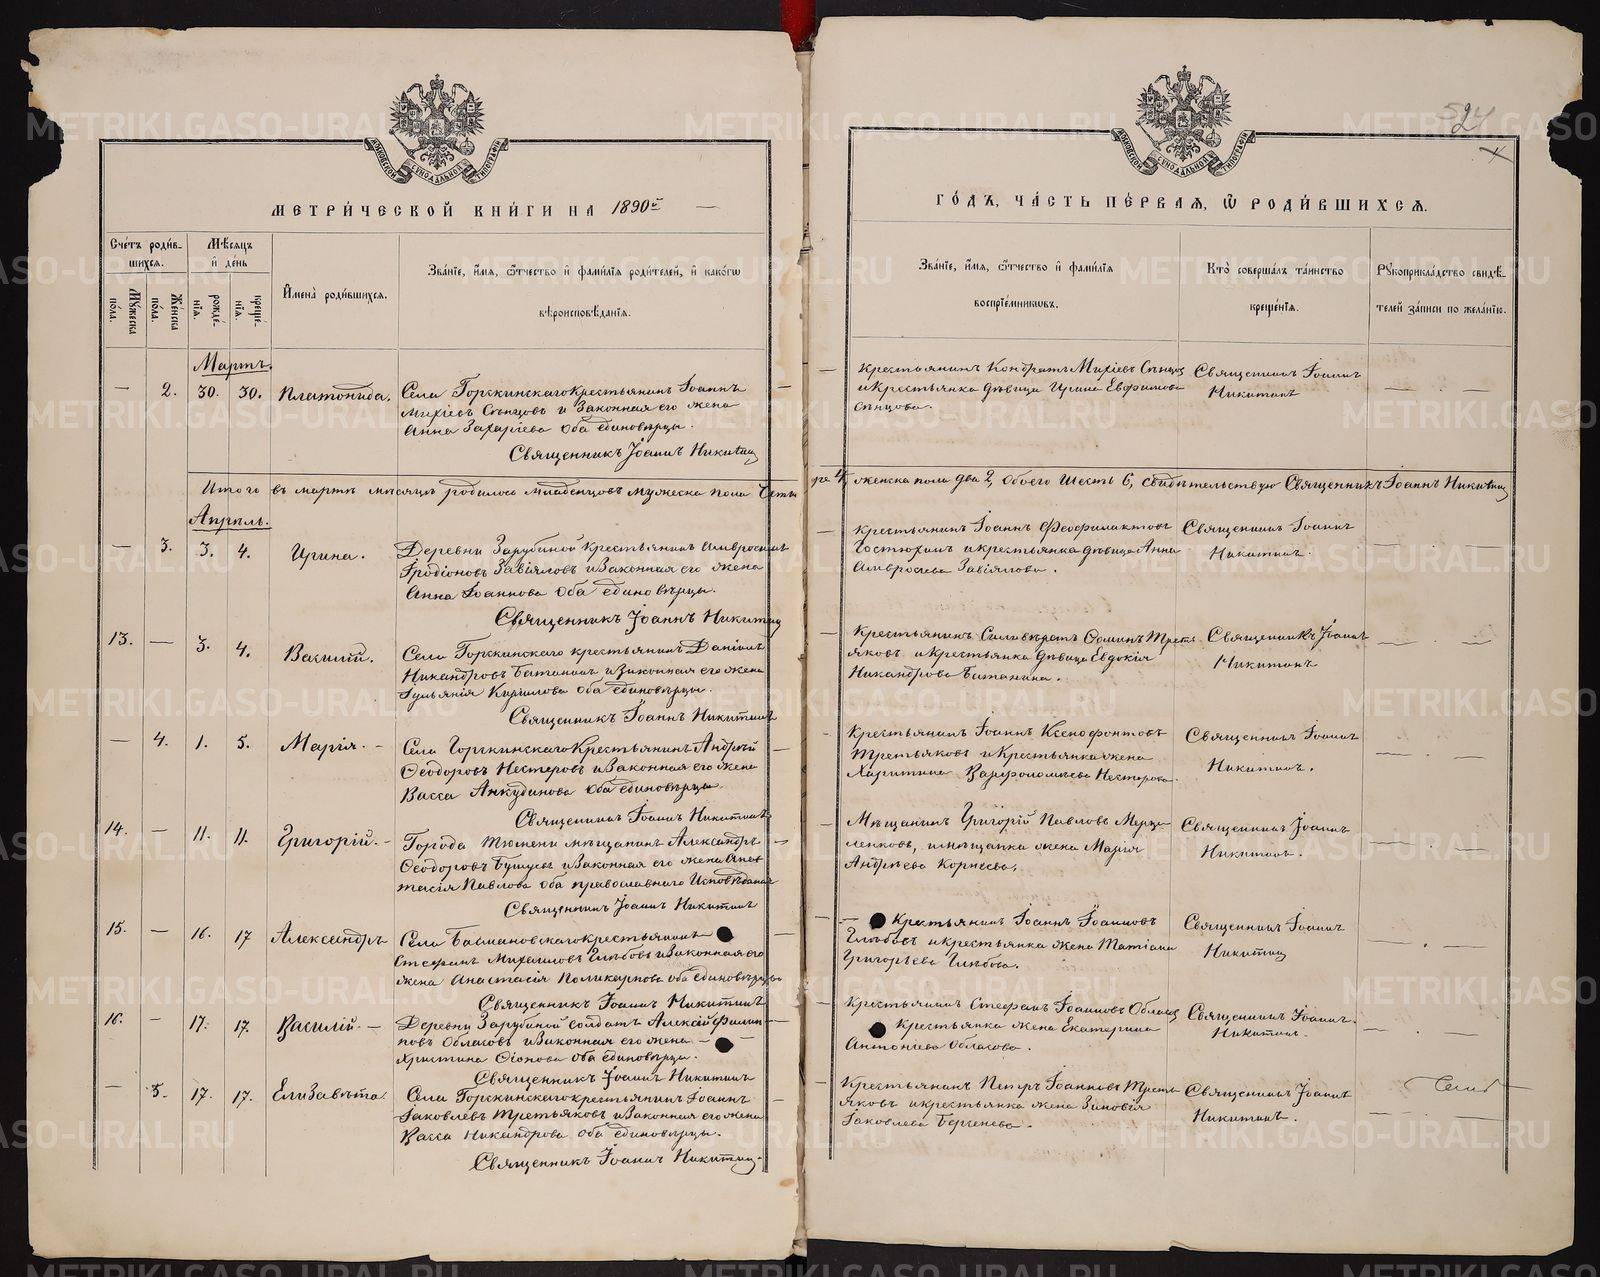 МЕТРИ́ЧЕСКОЙ КНИ́ГИ НА 1890й
Сче́тъ роди́в-
шихся.
Му́жеска
по́ла.
Же́нска
по́ла.
Мѣ́сяцъ
и҆ де́нь
рожде́-
нїя.
креще́-
нїя.
И҆мена̀ роди́вшихся.
Зва́нїе, и҆́мя, ѿ́тчество и҆ фами́лїѧ роди́телей, и҆ како́гѡ
вѣроисповѣ́данїѧ.
Мартъ.
— 2. 30. 30. Платонида.
Села Горскинскаго крестьянинъ Іоаннъ
Михіевъ Сѣнцовъ и законная его жена
Анна Захаріева оба единовѣрцы.
Священникъ Іоаннъ Никитинъ
Итого въ мартѣ мѣсяцѣ родилось младенцовъ мужеска пола четы
Апрѣль.
— 3. 3. 4. Ирина.
Деревни Зарубиной крестьянинъ Амвросій
Иродіоновъ Завіяловъ и законная его жена
Анна Іоаннова оба единовѣрцы.
Священникъ Іоаннъ Никитинъ
13. — 3. 4. Василій.
Села Горскинскаго крестьянинъ Даніилъ
Никандровъ Батанинъ и законная его жена
Іульянія Кирилова оба единовѣрцы.
Священникъ Іоаннъ Никитинъ
— 4. 1. 5. Марія. —
Села Горскинскаго крестьянинъ Андрей
Ѳеодоровъ Нестеровъ и законная его жена
Васса Анкудинова оба единовѣрцы.
Священникъ Іоаннъ Никитинъ
14. — 11. 11. Григорій. —
Города Тюмени мѣщанинъ Александръ
Ѳеодоровъ и законная его жена Анас
тасія Павлова оба православнаго исповѣданія
Священникъ Іоаннъ Никитинъ
15. — 16. 17 Александръ
Села Басмановскаго крестьянинъ
Стефанъ Михаиловъ Глѣбовъ и законная его
жена Анастасія Поликарпова оба единовѣрцы
Священникъ Іоаннъ Никитинъ
16. — 17. 17. Василій. —
Деревни Зарубиной солдатъ Алексій Филип
повъ Обласовъ и законная его жена —
Христина Сіонова оба единовѣрцы.
Священникъ Іоаннъ Никитинъ
— 5. 17. 17. Елизавѣта.
Села Горскинскаго крестьянинъ Іоаннъ
Іаковлевъ Третьяковъ и законная его жена
Васса Никандрова оба единовѣрцы.
Священникъ Іоаннъ Никитинъ
ГО́ДЪ, ЧА́СТЬ ПЕ́РВАЯ, Ѡ҆ РОДИ́ВШИХСЯ.
Зва́нїе, и҆́мя, ѿ́тчество и҆ фами́лїѧ
воспрїе́мниковъ.
Кто̀ соверша́лъ та́инство
креще́нїѧ.
Рꙋкоприкла́дство свидѣ́-
телей за́писи по жела́нїю.
Крестьянинъ Кондратъ Михіевъ Сѣнцовъ
и крестьянка дѣвица Ирина Евфимова
Сѣнцова.
Священникъ Іоаннъ
Никитинъ
ре 4, женска пола два 2, обоего шесть 6, свидѣтельствую Священникъ Іоаннъ Никитинъ
Крестьянинъ Іоаннъ Феофилактовъ
Костюхинъ и крестьянка дѣвица Анна
Амвросіева Завіялова.
Священникъ Іоаннъ
Никитинъ.
Крестьянинъ Силивѣрстъ Третья
яковъ и крестьянка дѣвица Евдокія
Никандрова Батанина.
Священникъ Іоаннъ
Никитинъ
Крестьянинъ Іоаннъ Ксенофонтовъ
Третьяковъ и крестьянка жена
Харитина Варфоломеева Нестерова.
Священникъ Іоаннъ
Никитинъ.
Мѣщанинъ Григорій Павловъ
и мѣщанка жена Марія
Андреева Корнеева.
Священникъ Іоаннъ
Никитинъ.
Крестьянинъ Іоаннъ Іоанновъ
Глѣбовъ и крестьянка жена Татіана
Григорьева Глѣбова.
Священникъ Іоаннъ
Никитинъ
Крестьянинъ Стефанъ Іоанновъ Обласовъ
крестьянка жена Екатерина
Антоніева Обласова.
Священникъ Іоаннъ
Никитинъ
Крестьянинъ Петръ Іоанновъ Треть
яковъ и крестьянка жена Зиновія
Іаковлева Бергенева.
Священникъ Іоаннъ
Никитинъ.
METRIKI.GASO-URAL.RU